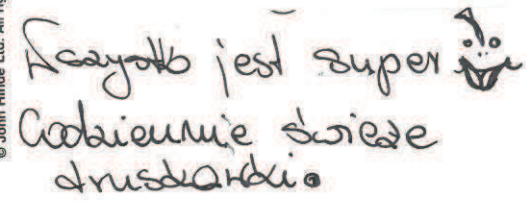 © John Hinde Ltd. All rig
Wszystko jest super
Codziennie świeże
truskawki.